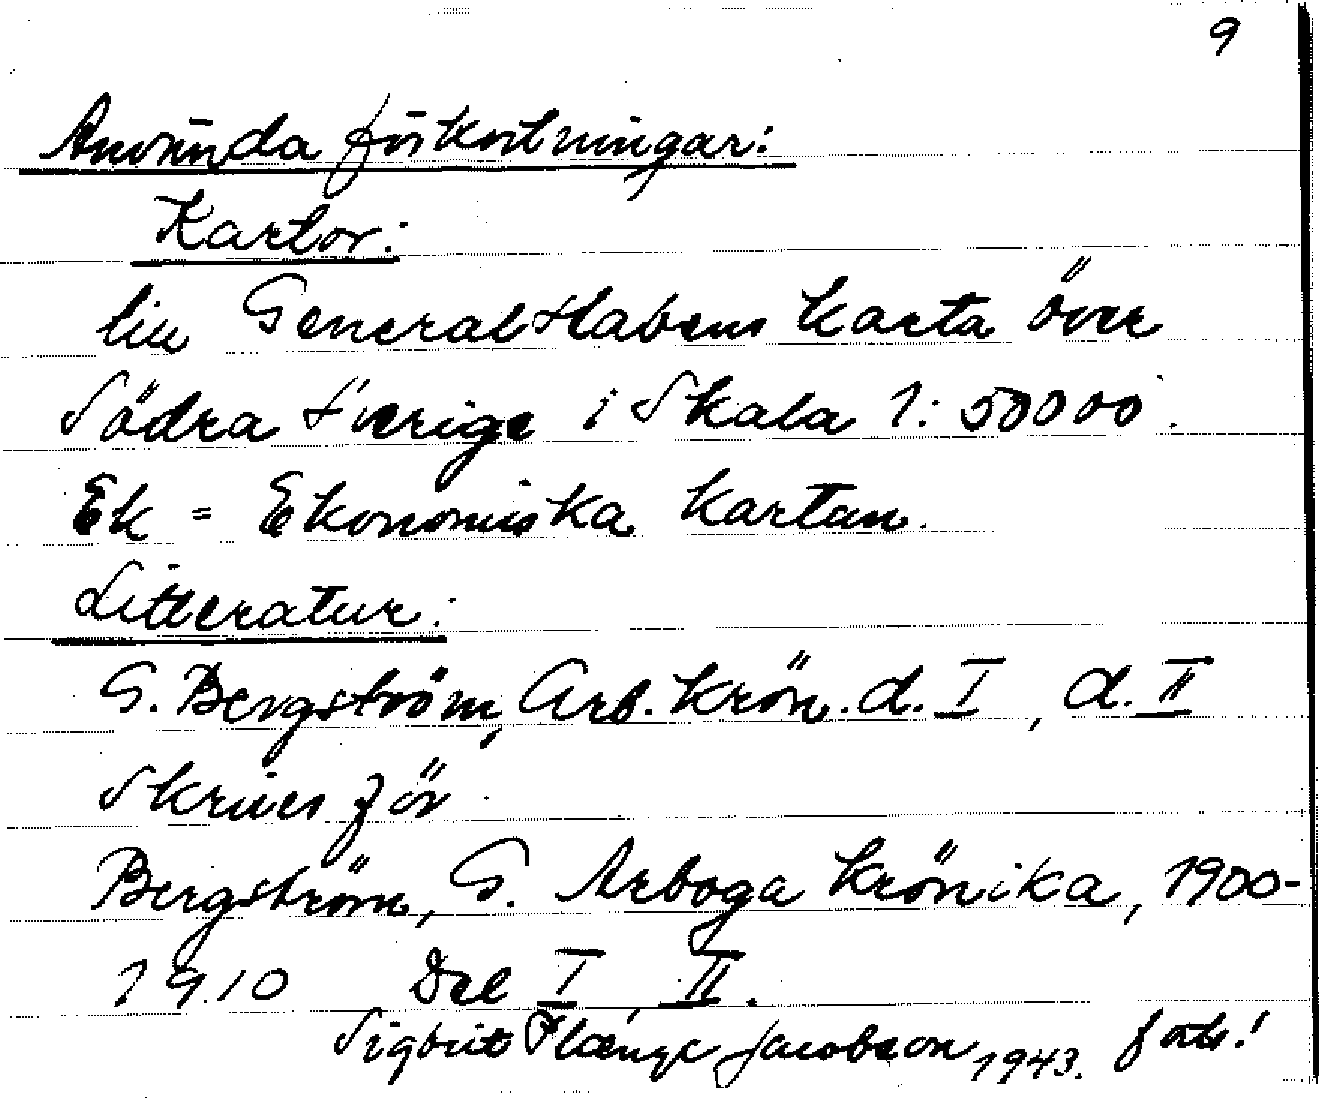 9
Använda förkortningar:
Kartor:
Generalstabens karta över
Södra Sverige i Skala 1:50000.
Ek = Ekonomiska Kartan.
Litteratur:
G. Bergström, Arb. Krön. d. I, d. II
Skrives för
Bergström, G. Arboga Krönika, 1900-
1910 Del I, II.
Sigbrit Plænge Jacobson 1943. forts!